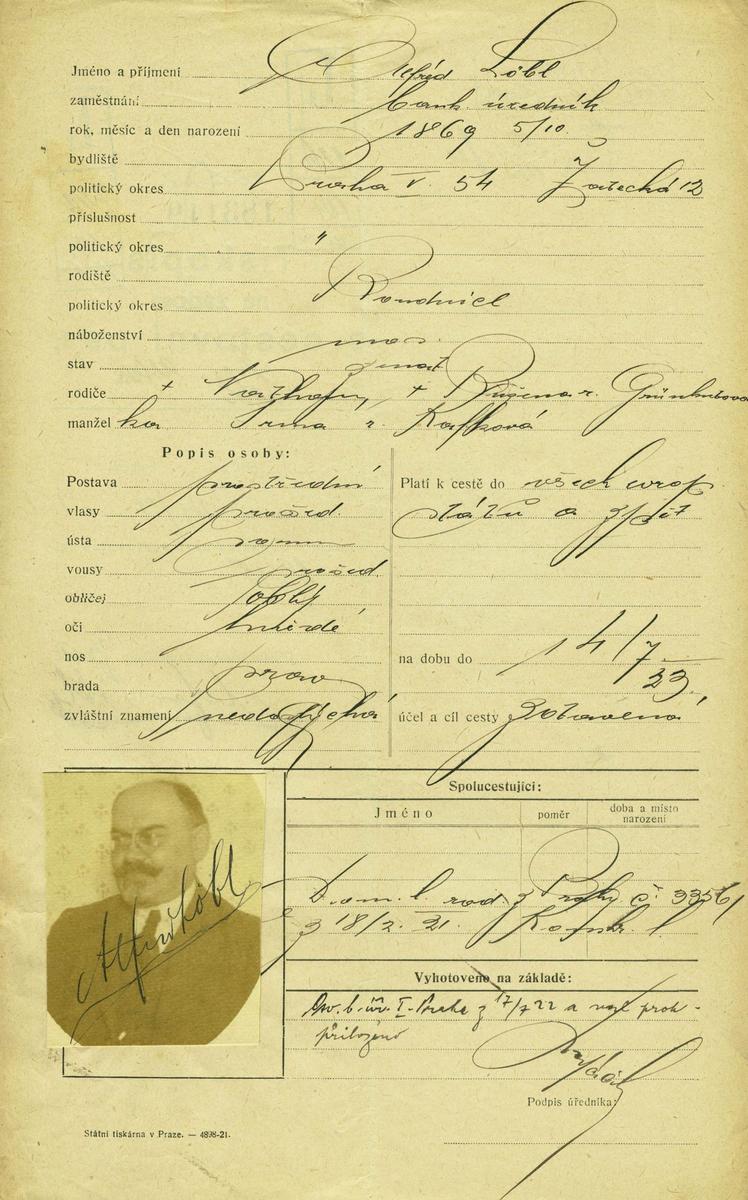 Jméno a příjmení Alfréd Löbl
zaměstnání bank. úředník
rok, měsíc a den narození 1869 5/10.
bydliště
politický okres Praha V. 54 Žatecká 12
příslušnost
politický okres "
rodiště
politický okres Roudnice
náboženství
stav ženat
rodiče + + Růžena r.
manžel ka Irma r. Kafková
Popis osoby:
Postava prostřední
vlasy prošed.
ústa
vousy prošed.
obličej oblý
oči hnědé
nos
brada
zvláštní znamení
Platí k cestě do všech evrop.
států a zpět
na dobu do 14/7
23.
účel a cíl cesty zotavená
Alfred Löbl
Spolucestující:
Jméno poměr doba a místo narození
Dom. l. z Prahy č. 33561
z 18/2. 21.
Vyhotoveno na základě:
I-Praha z 17/7 22 a
přiloženo
Podpis úředníka:
Státní tiskárna v Praze. — 4898-21.